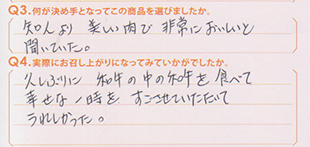 Q3.何が決め手となってこの商品を選びましたか。
知人より 美しい肉で 非常においしいと
聞いていた。
Q4.実際にお召し上がりになってみていかがでしたか。
久しぶりに 和牛の中の和牛を 食べて
幸せな一時を すごさせていただいて
うれしかった。